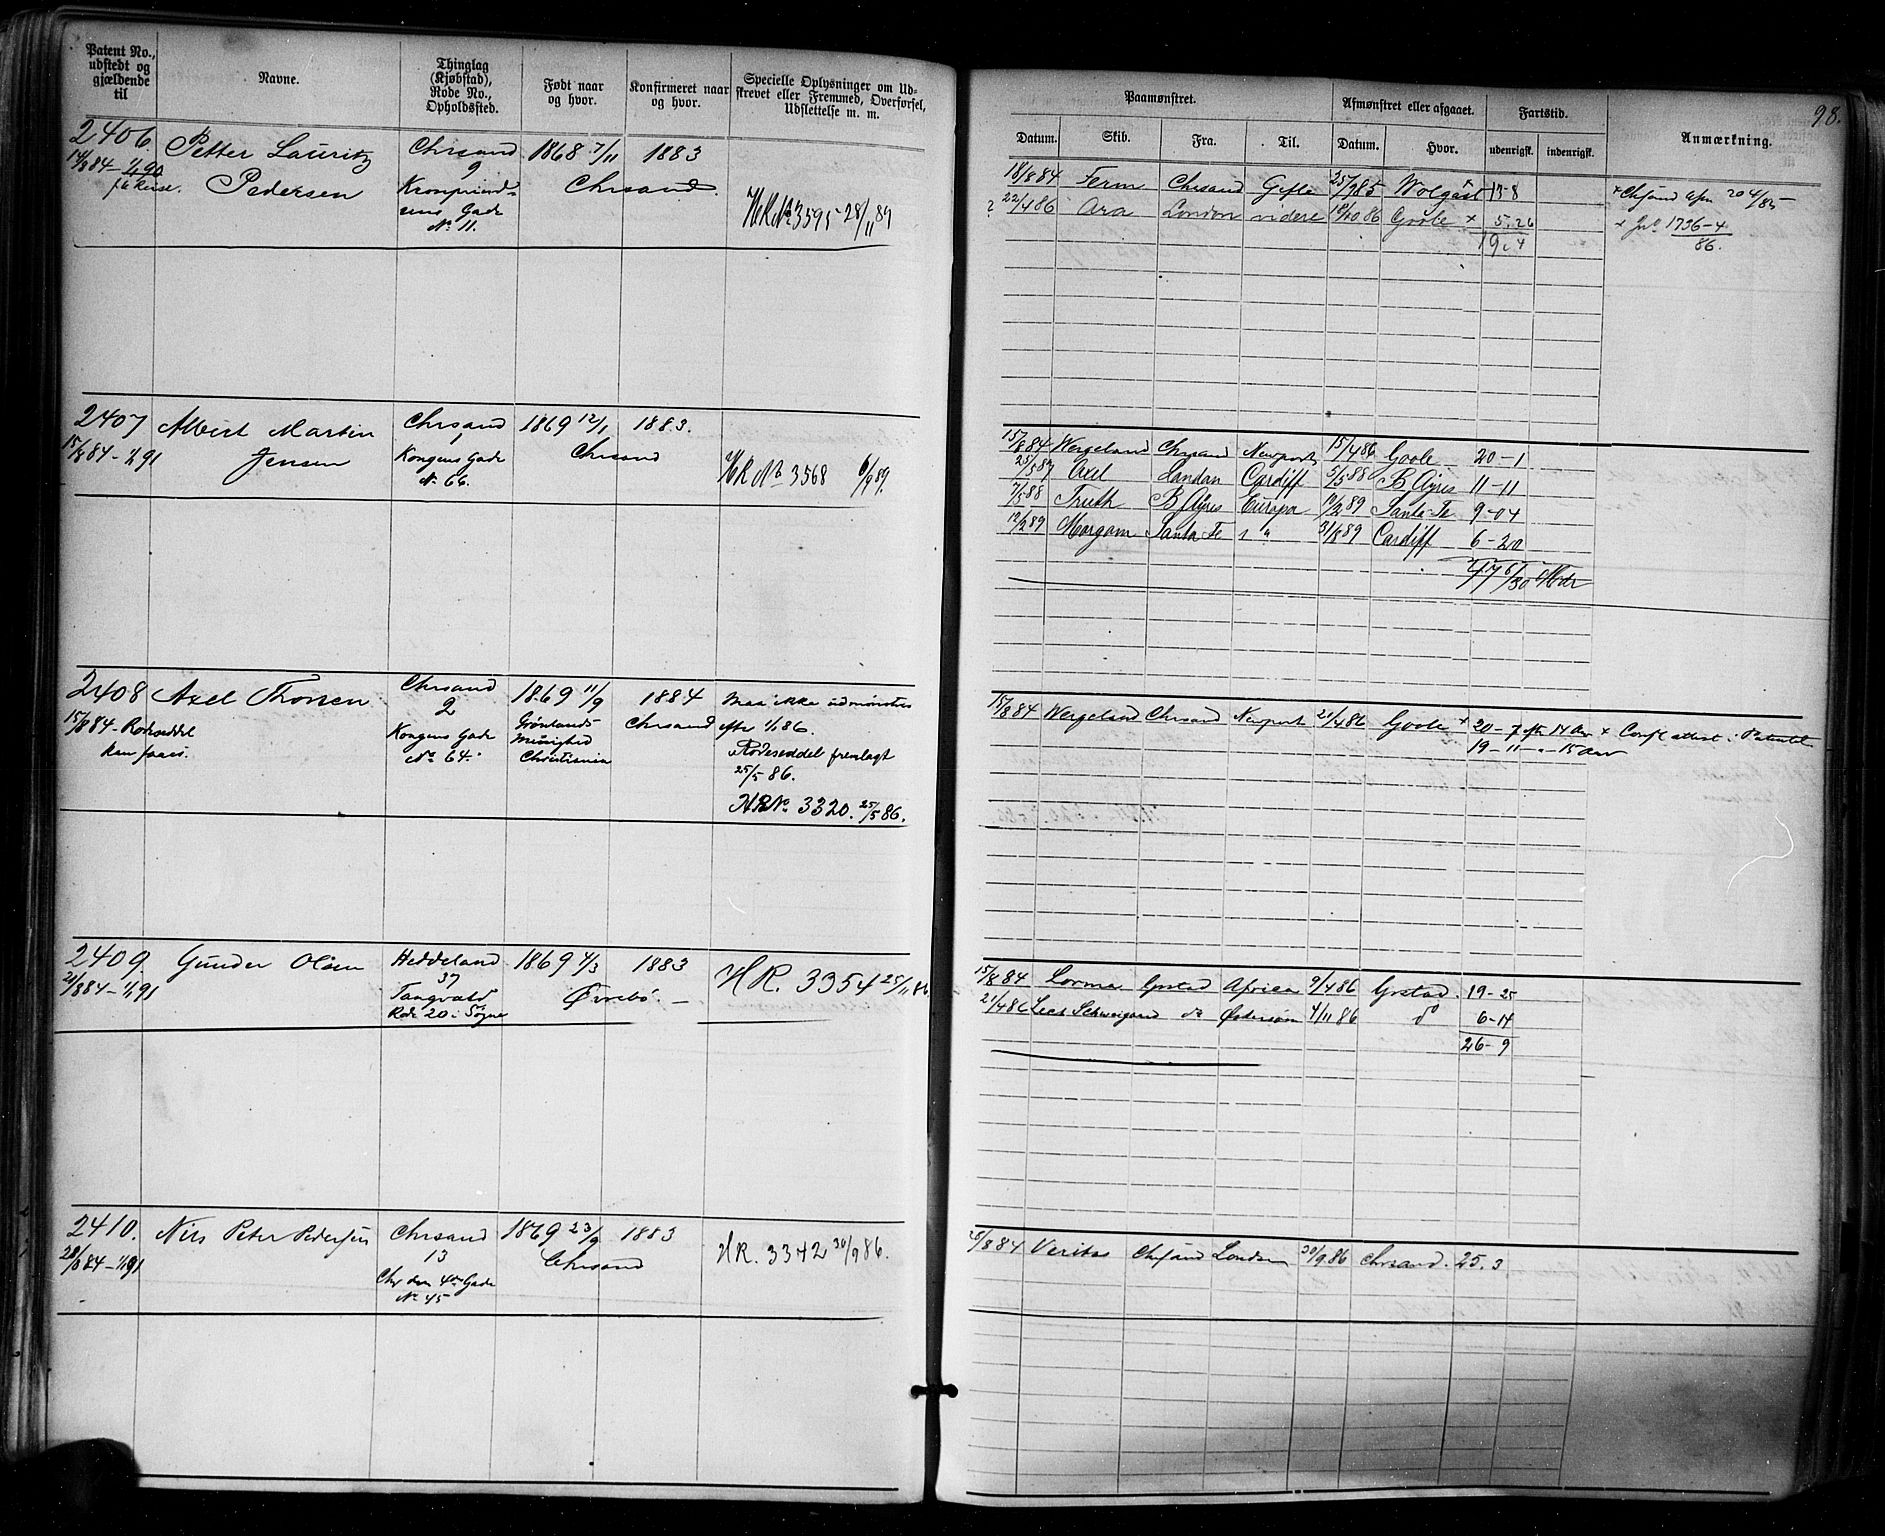 Patent No., udstedt og gjældende til
Navne.
Thinglag (Kjøbstad), Rode No., Opholdssted.
Født naar og hvor.
Konfirmeret naar og hvor.
Specielle Oplysninger om Udskrevet eller Fremmed, Overførsel, Udslettelse m. m.
Paamønstret.
Afmønstret eller afgaaet.
Fartstid.
98.
Datum.
Skib.
Fra.
Til.
Datum.
Hvor.
udenrigsk.
indenrigsk.
Anmærkning.
2406 Petter Lauritz Chrsand 1868 7/11 1883
14/8 84 – 1/1 90 Pedersen 2 Chrsand.
Kronprindsens Gade
No 11.
HR No 3595 28/11 89
18/8 84 Ferm Chrsand Gefle 25/9 85 Wolgast x 13-8 x Chrsand
? 22/4 86 Ara London videre 18/10 86 Goole x 5.26 x Jnl 1736-4/86.
19.4
2407 Albert Martin Chrsand 1869 12/1 1883.
15/8 84 – 1/1 91 Jensen 1 Chrsand
Kongens Gade
No 66.
HR No 3568 6/9 89.
15/8 84 Wergeland Chrsand Newport 15/4 86 Goole 20-1
25/5 87 Axel London Cardiff 5/5 88 B Ayres 11-11
7/5 88 Truth B Ayres Europa 11/2 89 Santa Fe 9-04
12/2 89 Morgam Santa Fe " 31/8 89 Cardiff 6-20
47 6/30 Mdr
2408 Axel Thorsen Chrsand 1869 11/9 1884 Maa ikke udmønstres
15/8 84 – Rodeseddel 2 Grønlands- Chrsand efter 1/1 86.
kan faaes. Kongens Gade Menighed Rodeseddel fremlagt
No 64. Christiania 25/5 86.
HR No 3320. 25/5 86.
15/8 84 Wergeland Chrsand Newport 21/4 86 Goole x 20-7 eft 14 Aar x Confl attest i Patentet
19-11 - " - 15 Aar
2409. Gunder Olsen Heddeland 1869 4/3 1883 HR. 3354 25/11 86
21/8 84 – 1/1 91 37 Øvrebø. –
Tangvald
Rode 20 i Søgne
15/8 84 Lorma Grstad Africa 9/4 86 Grstad 19-25
21/4 86 Schweigaard do Østersøen 4/11 86 do 6-14
26-9
2410. Nils Peter Pedersen Chrsand 1869 23/9 1883 HR. 3342 30/9 86.
28/8 84 – 1/1 91 13 Chrsand
Chr den 4des Gade
No 45
28/8 84 Veritas Chrsand London 30/9 86 Chrsand. 25.3